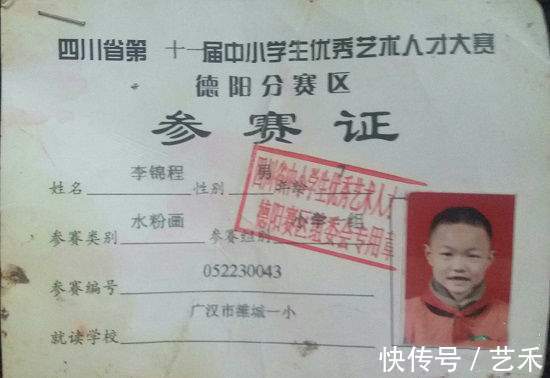 四川省第十一届中小学生优秀艺术人才大赛
德阳分赛区
参赛证
姓名 李锦程 性别 男
参赛类别 水粉画 参赛组别 小学 组
参赛编号 052230043
就读学校 广汉市雒城一小
四川省中小学生优秀艺术人才
德阳赛区组委会专用章
快传号 / 艺禾